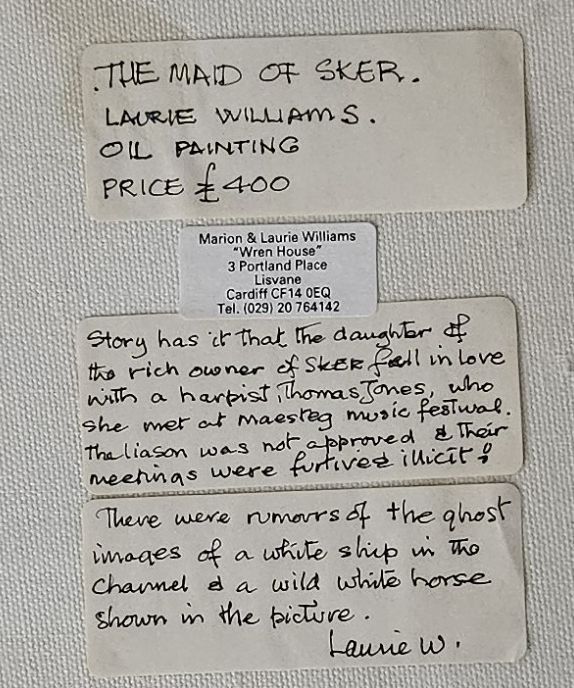 .THE MAID OF SKER.
LAURIE WILLIAMS.
OIL PAINTING
PRICE £400
Marion & Laurie Williams
"Wren House"
3 Portland Place
Lisvane
Cardiff CF14 0EQ
Tel. (029) 20 764142
Story has it that the daughter of
the rich owner of SKER fell in love
with a harpist, Thomas Jones, who
she met at maesteg music festival.
The liason was not approved & their
meetings were furtive & illicit!
There were rumours of the ghost
images of a white ship in the
Channel & a wild white horse
shown in the picture.
Laurie W.